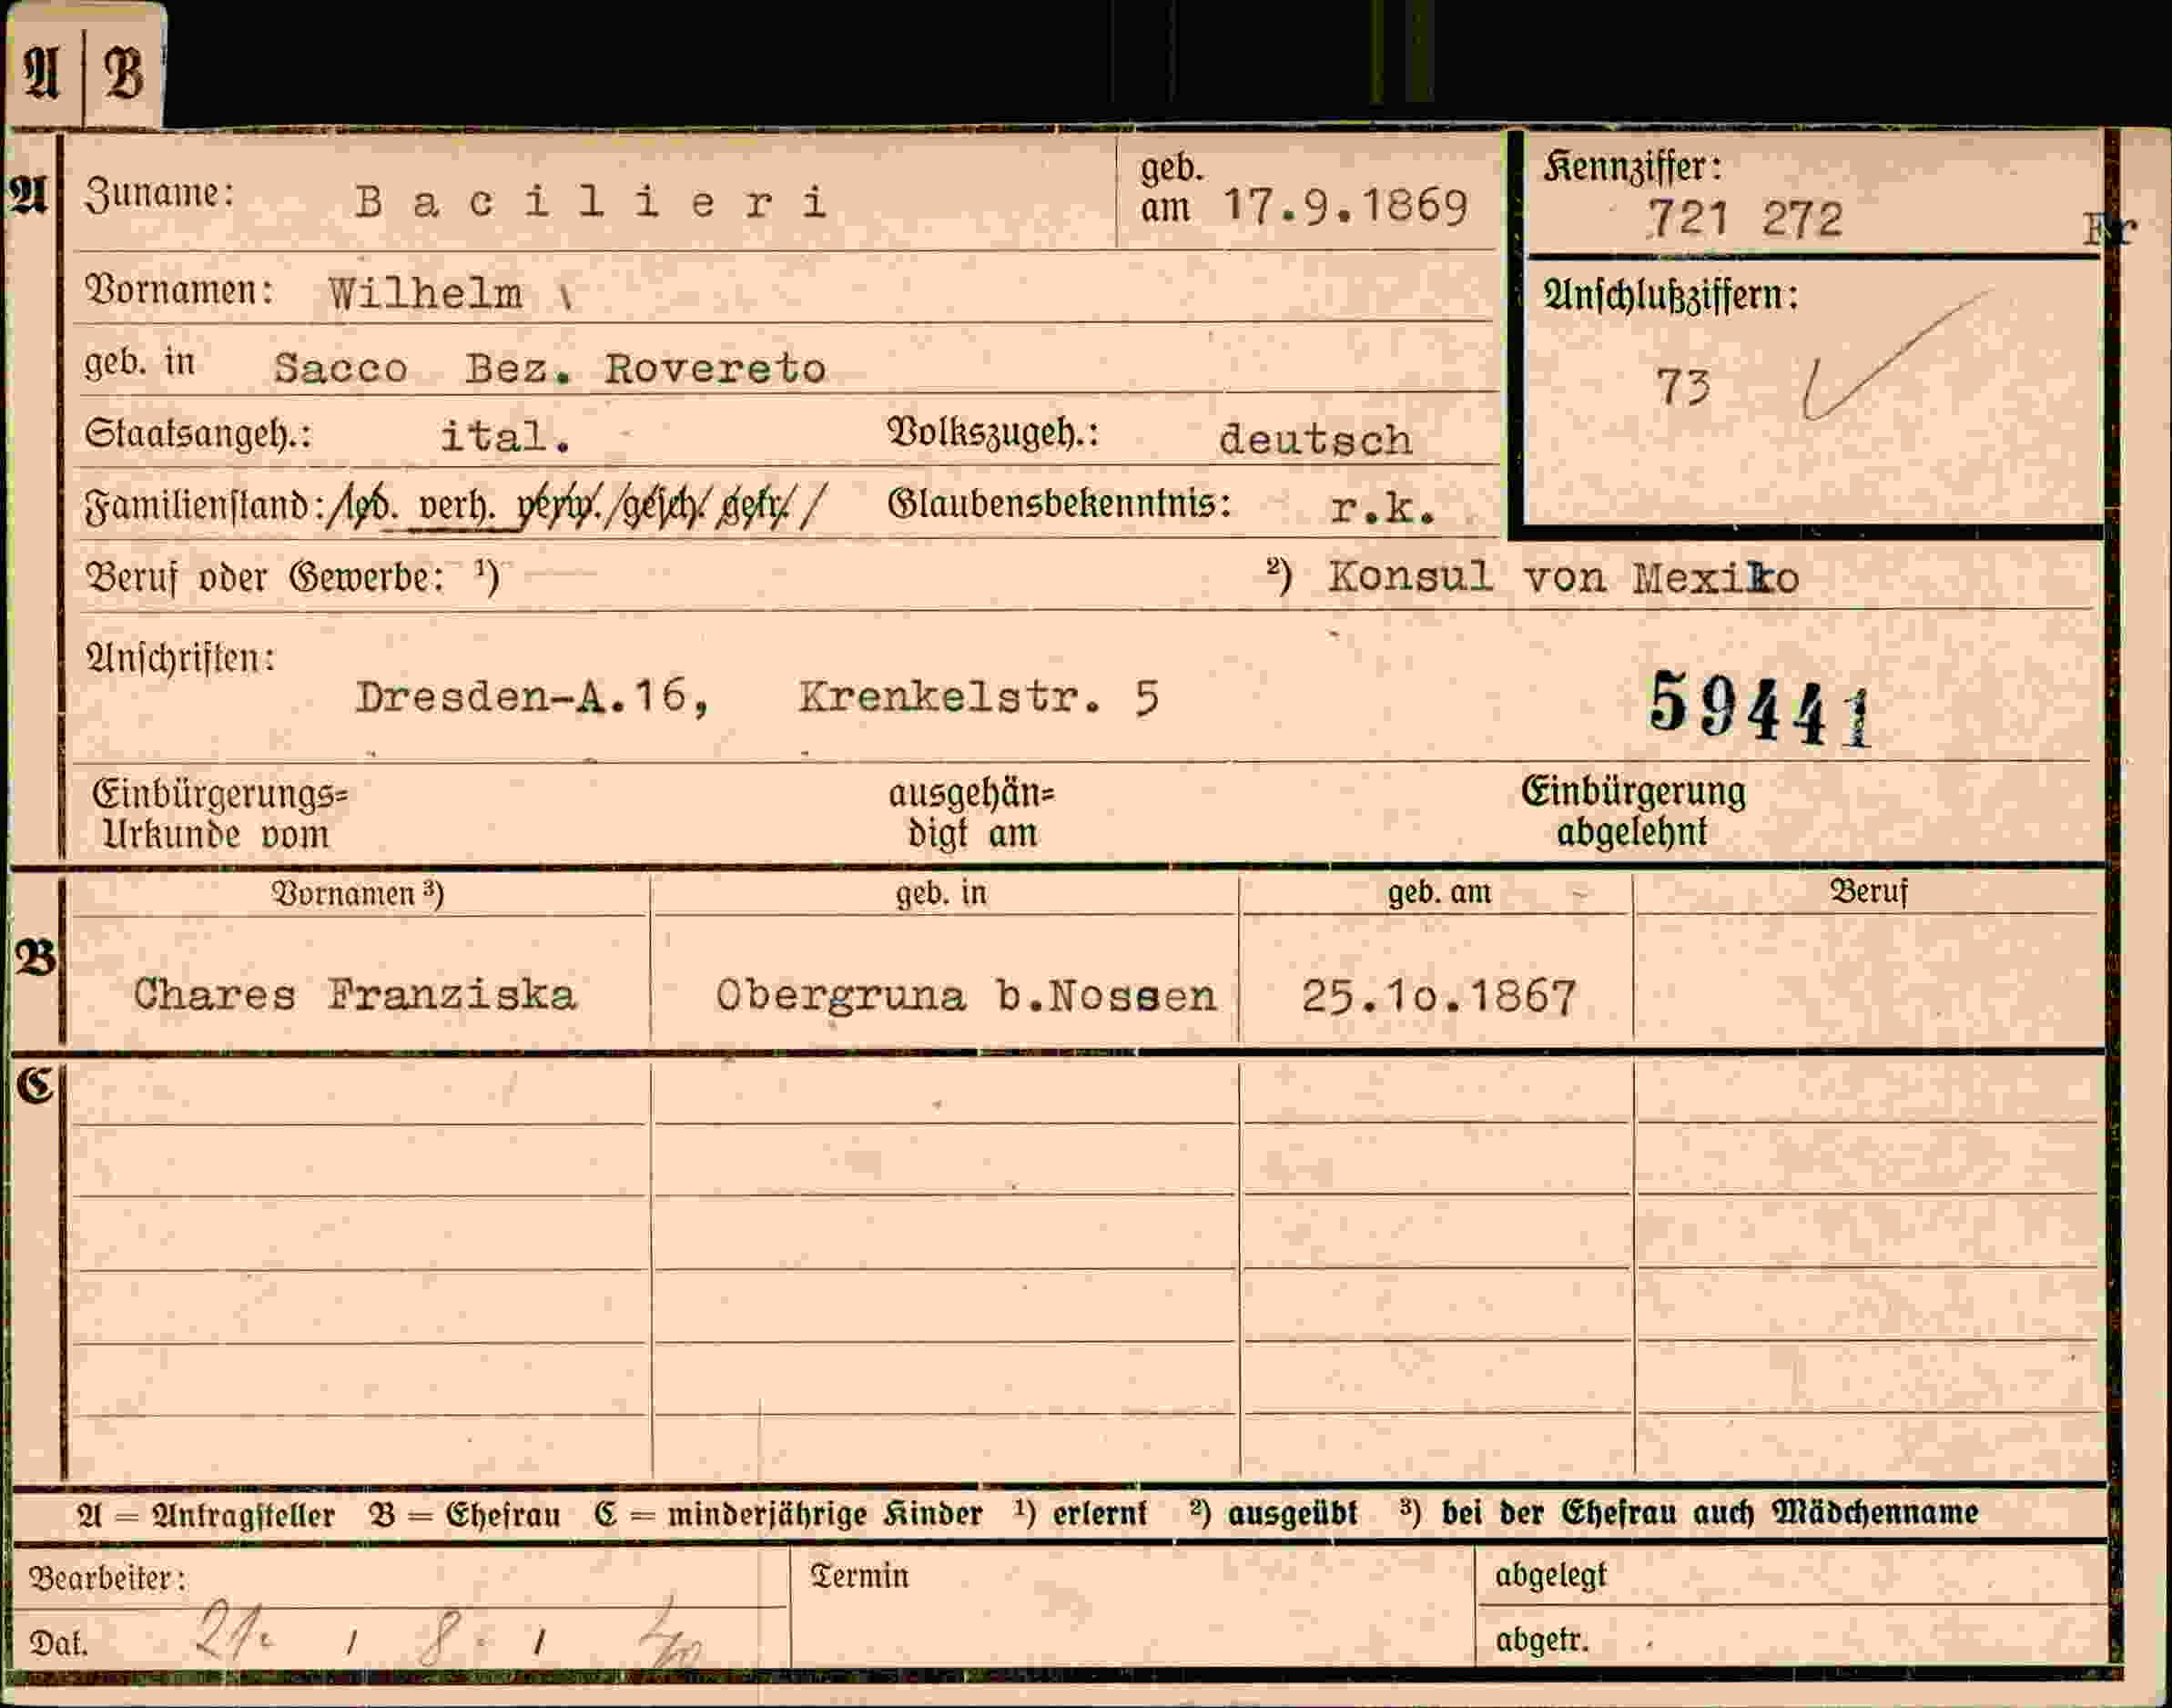 A | B
A Zuname: Bacilieri geb. am 17.9.1869
Kennziffer: 721 272 Fr
Vornamen: Wilhelm
Anschlußziffern: 73
geb. in Sacco Bez. Rovereto
Staatsangeh.: ital. Volkszugeh.: deutsch
Familienstand: led. verh. verw. gesch. getr. Glaubensbekenntnis: r.k.
Beruf oder Gewerbe: ¹) ²) Konsul von Mexiko
Anschriften:
Dresden-A.16, Krenkelstr. 5 59441
Einbürgerungs= ausgehän= Einbürgerung
Urkunde vom digt am abgelehnt
Vornamen ³) geb. in geb. am Beruf
B Chares Franziska Obergruna b.Nossen 25.1o.1867
C
A = Antragsteller B = Ehefrau C = minderjährige Kinder ¹) erlernt ²) ausgeübt ³) bei der Ehefrau auch Mädchenname
Bearbeiter: Termin abgelegt
Dat. 21. / 8. / 40 abgetr.